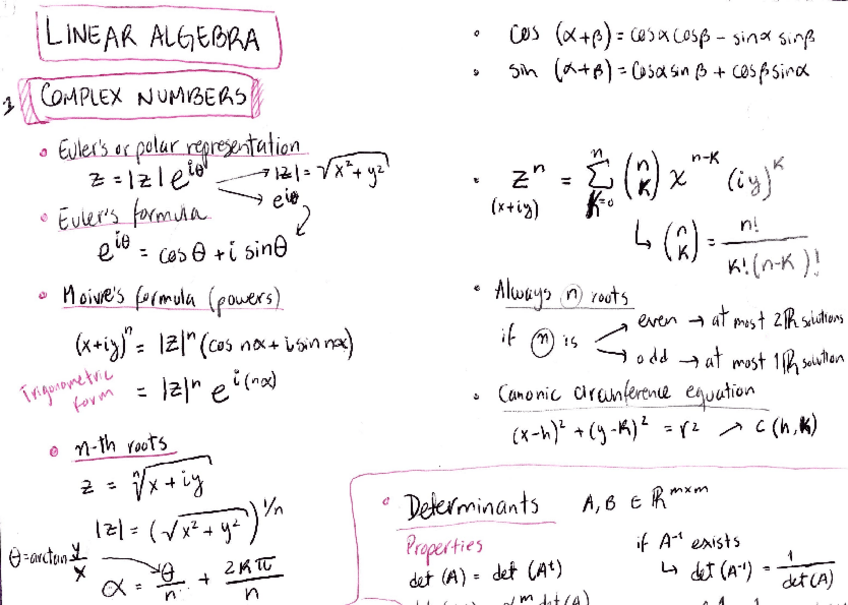 LINEAR ALGEBRA
COMPLEX NUMBERS
• Euler's or polar representation
z = |z| e^{iθ} → |z| = √(x² + y²)
→ e^{iθ}
• Euler's formula
e^{iθ} = cos θ + i sin θ
• Moivre's formula (powers)
(x+iy)^n = |z|^n (cos nα + i sin nα)
Trigonometric form
= |z|^n e^{i(nα)}
• n-th roots
z = ⁿ√(x + iy)
|z| = (√(x² + y²))^{1/n}
θ = arctan y/x
α = θ/n + 2Kπ/n
• cos (α+β) = cosα cosβ - sinα sinβ
• sin (α+β) = cosα sin β + cosβ sinα
• z^n = Σ_{K=0}^{n} (n K) x^{n-K} (iy)^K
(x+iy)
↳ (n K) = n! / K!(n-K)!
• Always n roots
if n is
→ even → at most 2 ℝ solutions
→ odd → at most 1 ℝ solution
• Canonic circunference equation
(x-h)² + (y-K)² = r² → C (h, K)
• Determinants A, B ∈ ℝ^{m×m}
Properties
det (A) = det (A^t)
if A^{-1} exists
↳ det (A^{-1}) = 1/det (A)